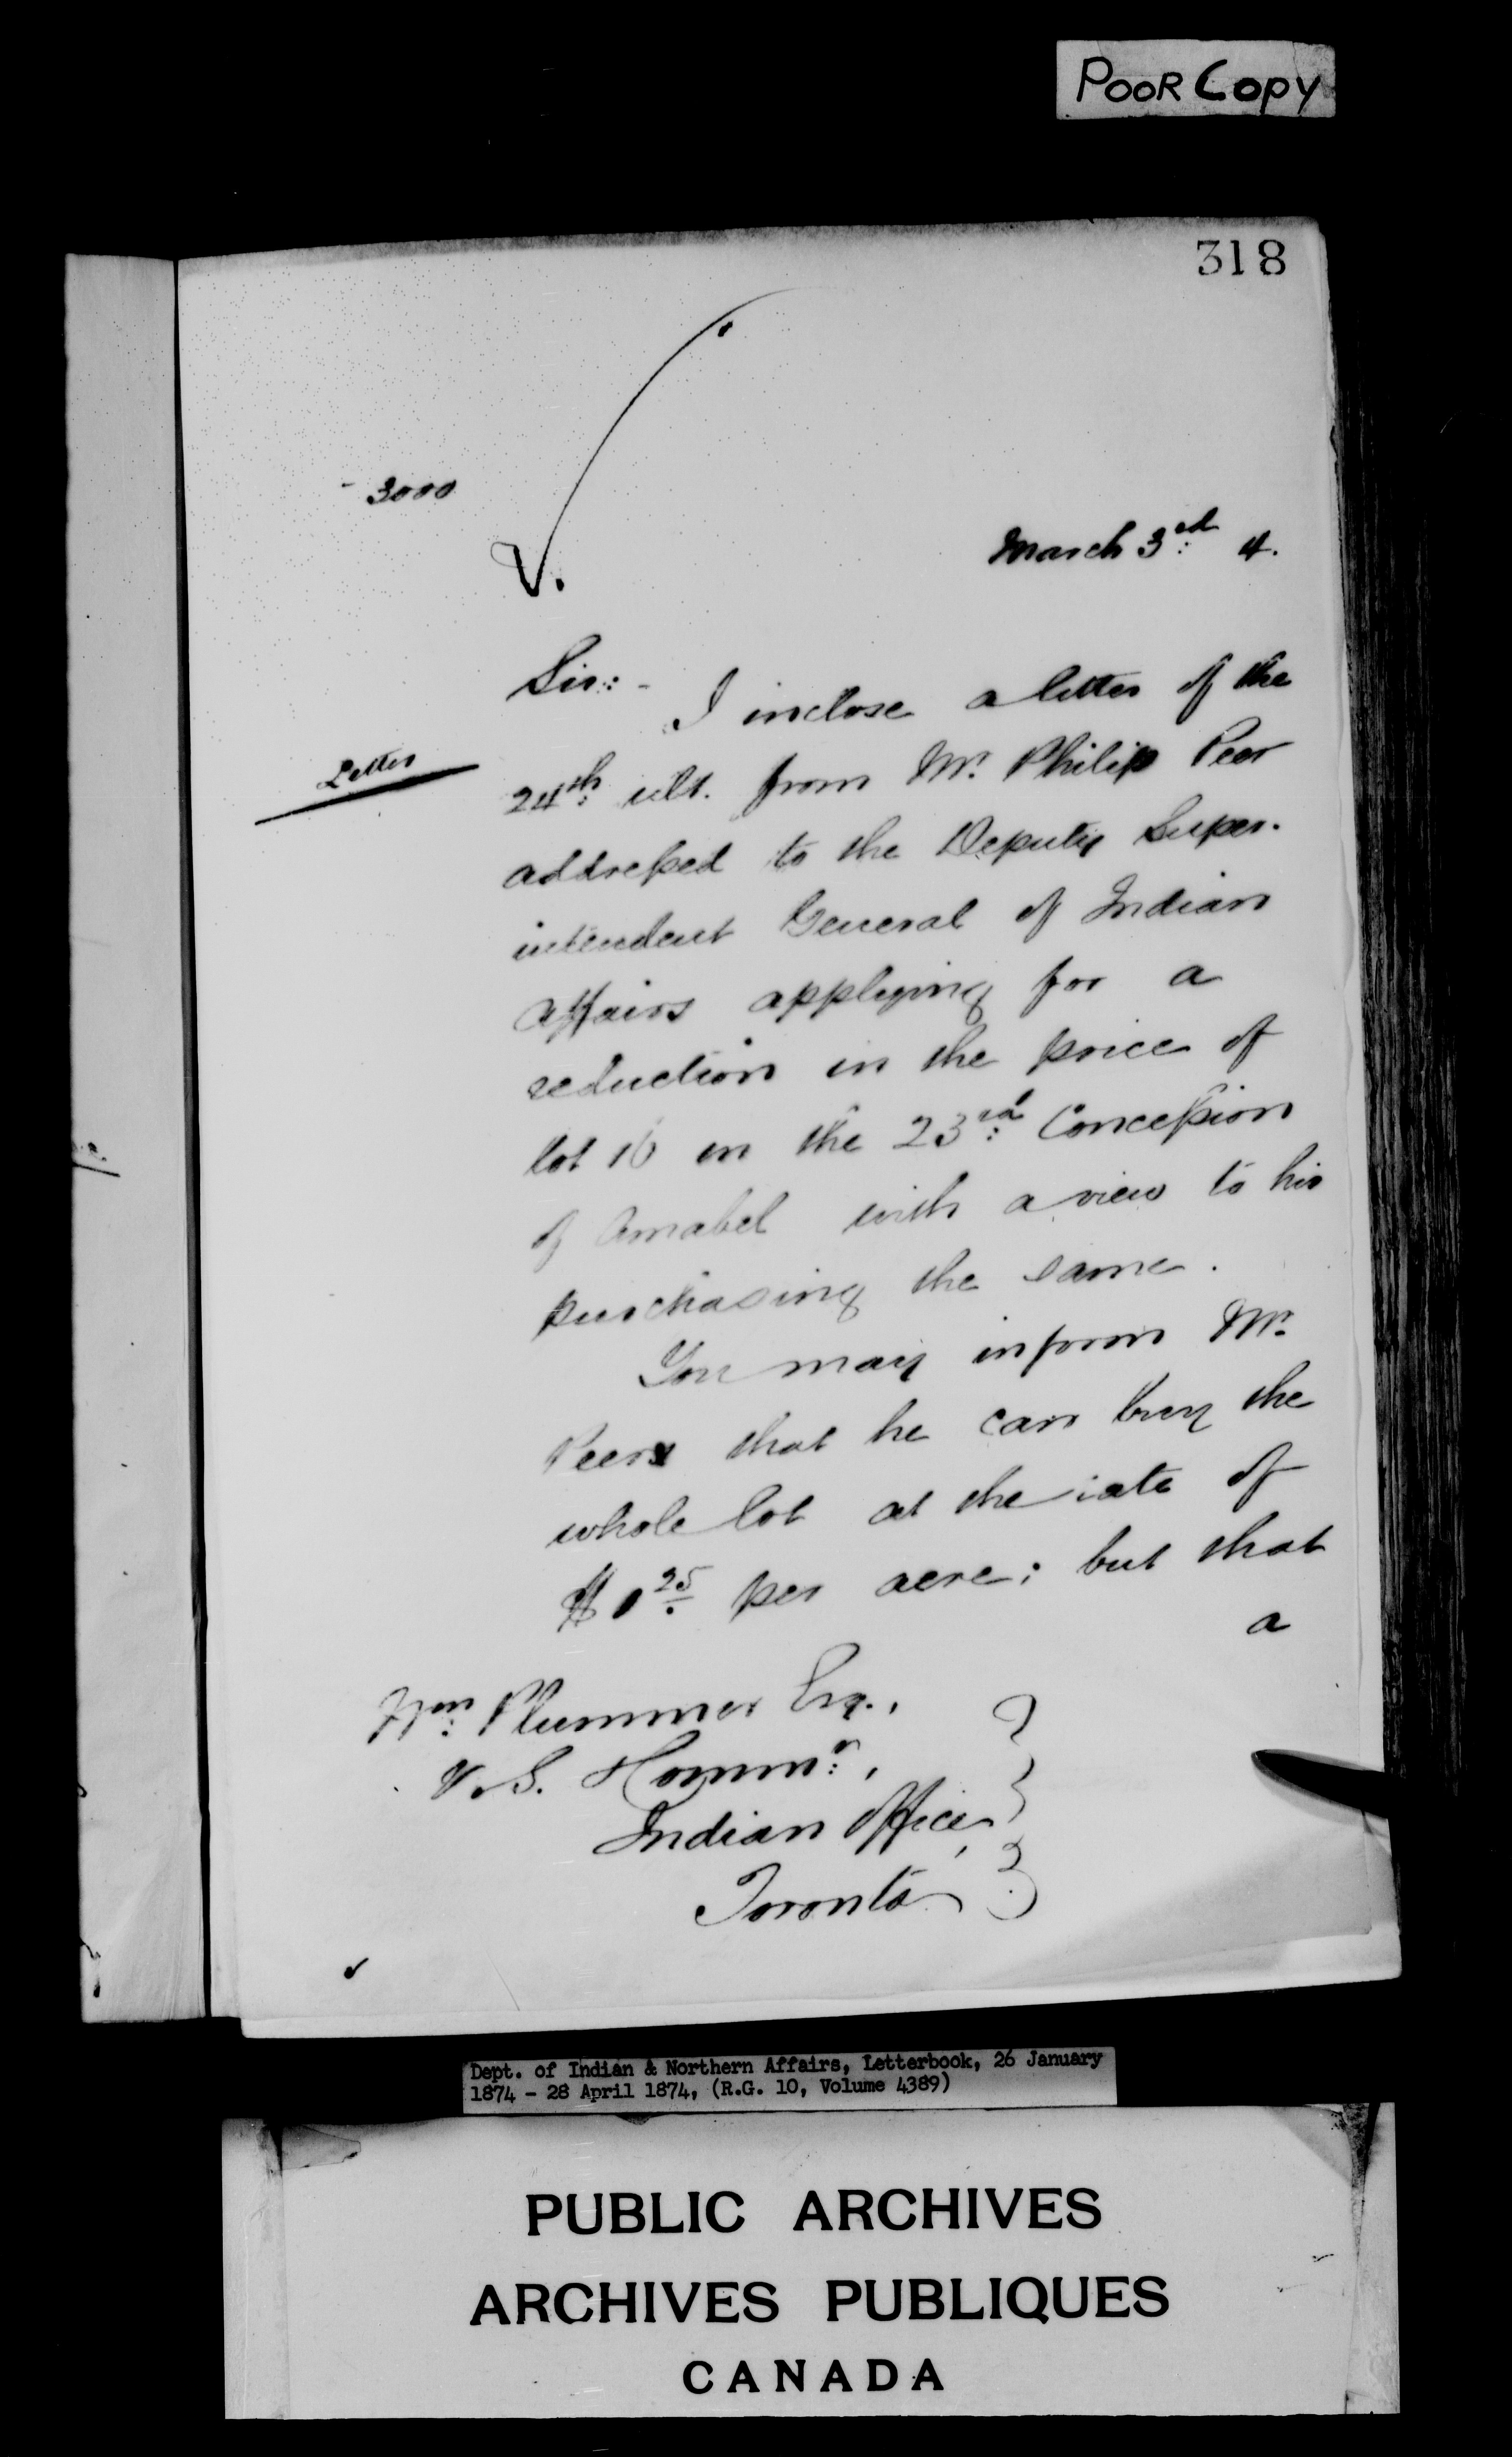 POOR COPY
318
3000
V.
March 3rd: 4.
Sir:-
I inclose a letter of the
Letter
24th: ult. from Mr. Philip Peer
addressed to the Deputy Super-
intendent General of Indian
Affairs applying for a
reduction in the price of
lot 16 in the 23rd: Concession
of Amabel with a view to his
purchasing the same.
You may inform Mr.
Peer that he can buy the
whole lot at the rate of
$1 25 per acre; but that
a
Wm: Plummer Esq.,
V. S. Commr:,
Indian Office,
Toronto.
Dept. of Indian & Northern Affairs, Letterbook, 26 January
1874 - 28 April 1874, (R.G. 10, Volume 4389)
PUBLIC ARCHIVES
ARCHIVES PUBLIQUES
CANADA